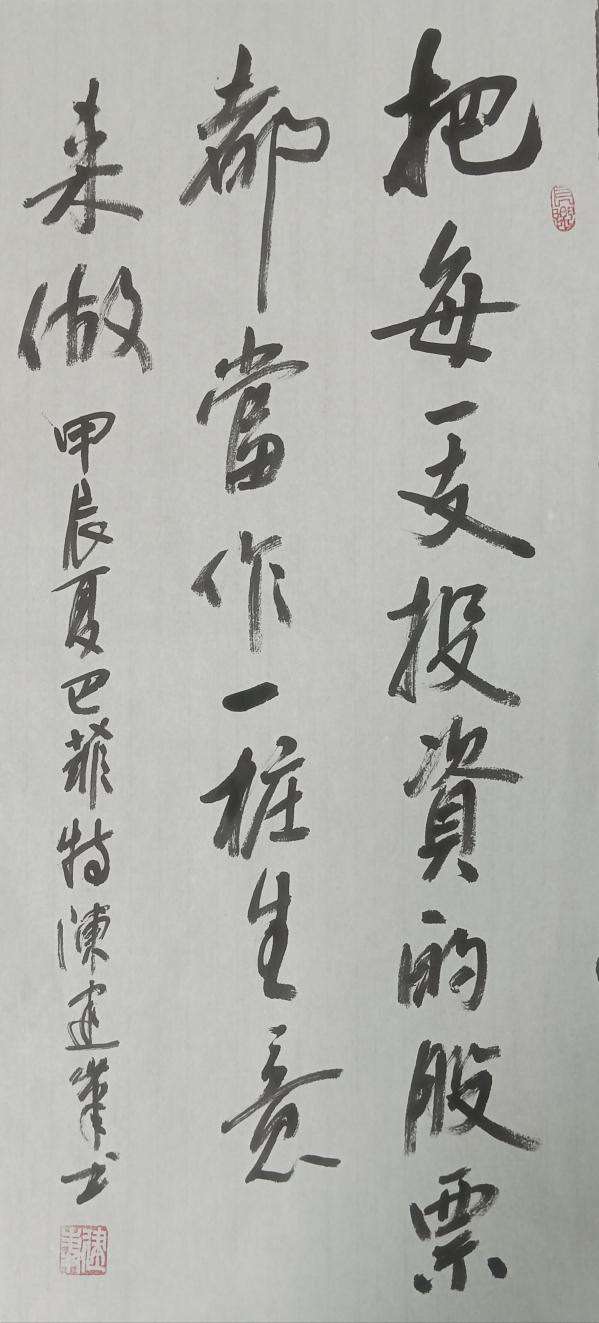 把每一支投資的股票
都當作一樁生意
来做
甲辰夏巴菲特陳建華书